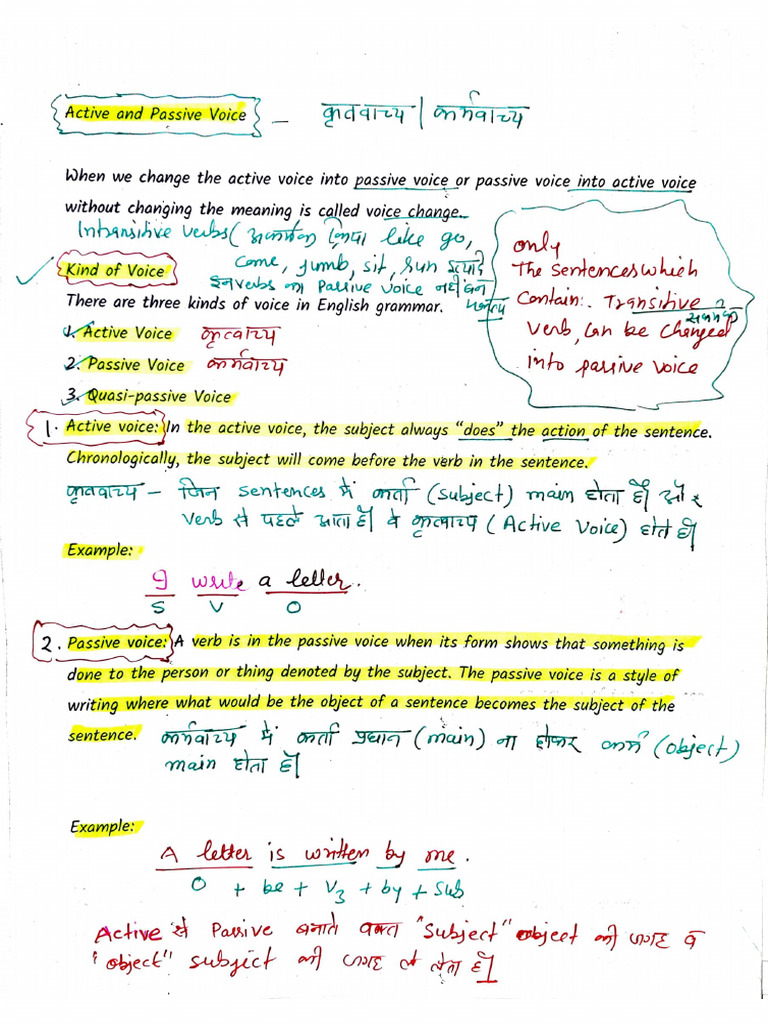 Active and Passive Voice - कृतवाच्य | कर्मवाच्य
When we change the active voice into passive voice or passive voice into active voice
without changing the meaning is called voice change.
Intransitive verbs (अकर्मक क्रिया like go,
come, jumb, sit, run इत्यादि
इन verbs का passive voice नही बन
सकता
only
The sentences which
Contain:. Transitive
सकर्मक
verb, can be changed
into passive voice
Kind of Voice
There are three kinds of voice in English grammar.
1. Active Voice कृत्वाच्य
2. Passive Voice कर्मवाच्य
3. Quasi-passive Voice
1. Active voice: In the active voice, the subject always "does" the action of the sentence.
Chronologically, the subject will come before the verb in the sentence.
कृतवाच्य - जिन sentences में कर्ता (subject) main होता है। और
verb से पहले आता है। वे कृत्वाच्य (Active Voice) होते है।
Example:
I write a letter.
S V O
2. Passive voice: A verb is in the passive voice when its form shows that something is
done to the person or thing denoted by the subject. The passive voice is a style of
writing where what would be the object of a sentence becomes the subject of the
sentence. कर्मवाच्य में कर्ता प्रधान (main) ना होकर कर्म (object)
main होता है।
Example:
A letter is written by me.
O + be + V3 + by + sub
Active से Passive बनाते वक्त "subject" object की जगह व
"object" subject की जगह ले लेता है।